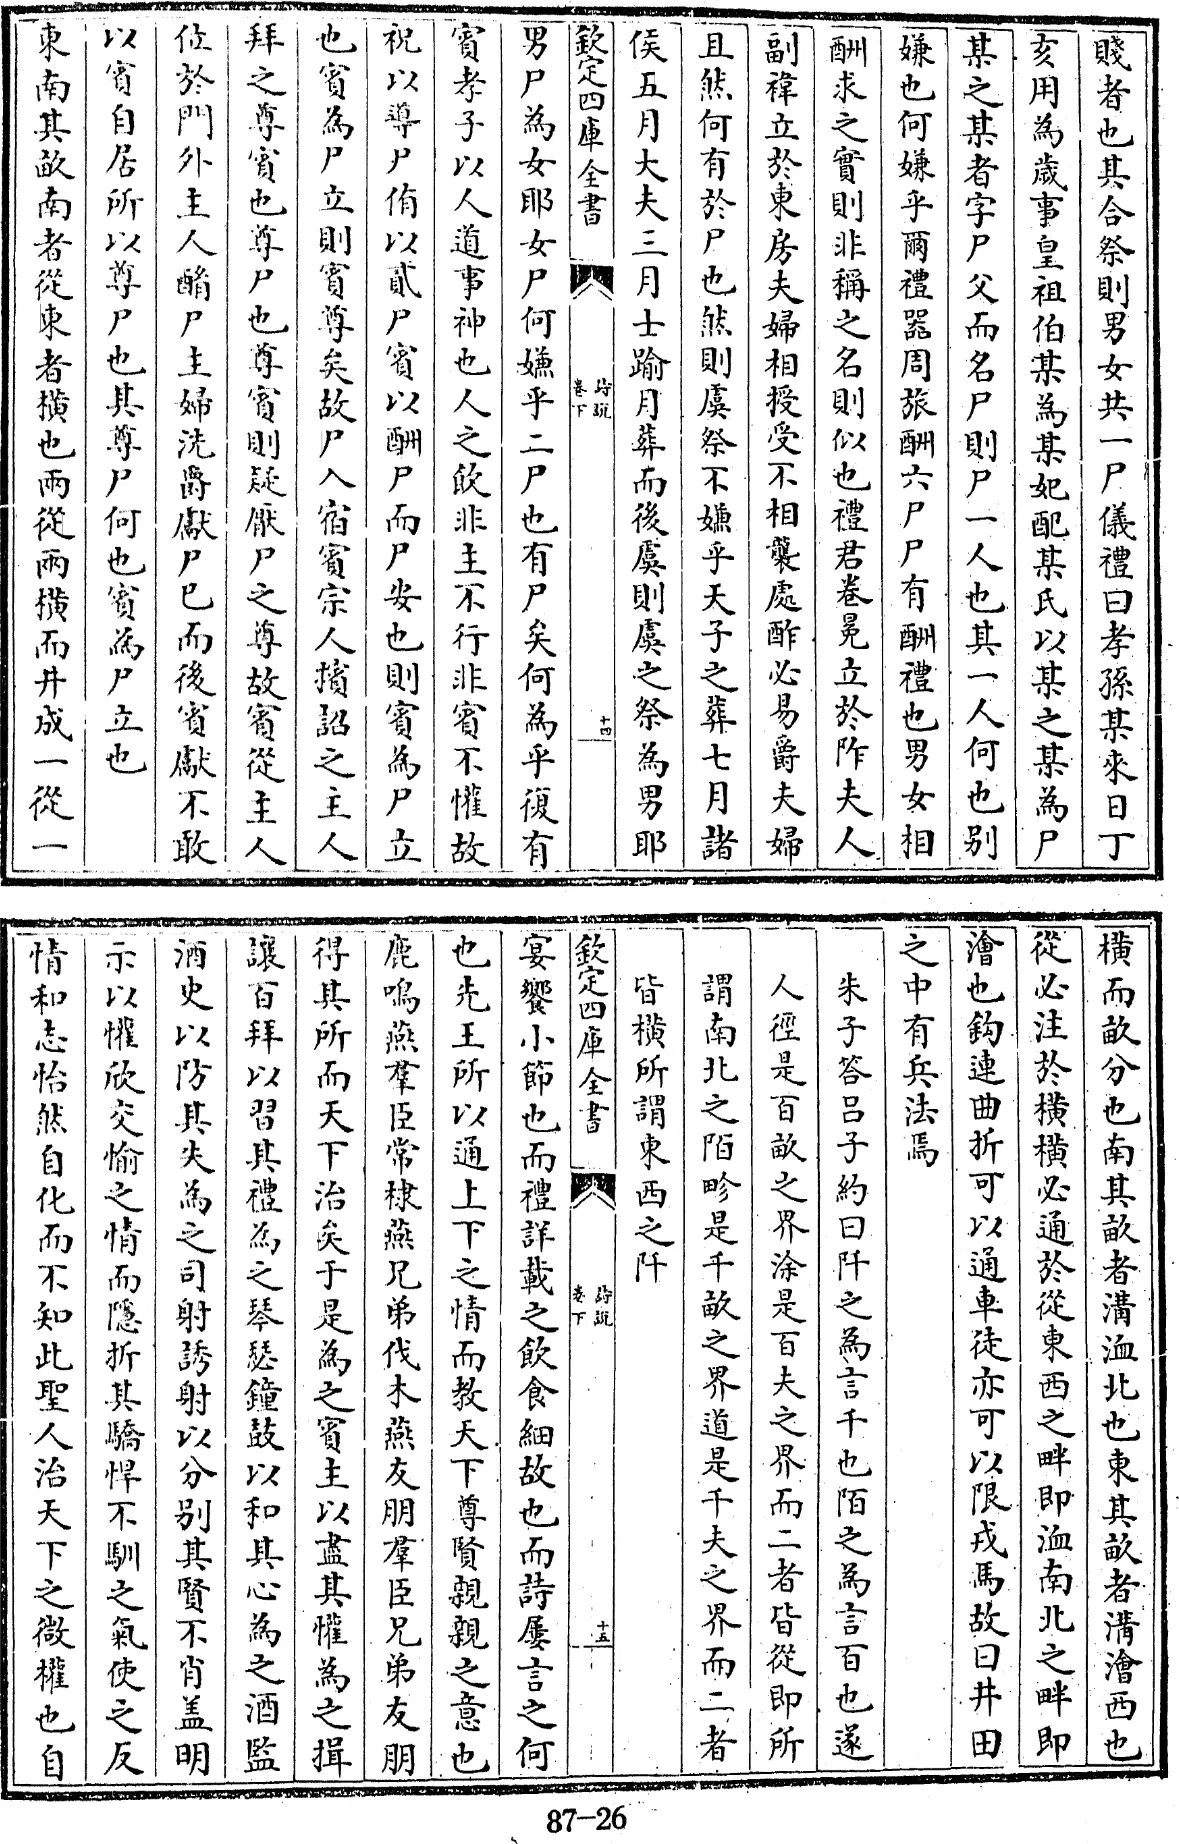 賤者也其合祭則男女共一尸儀禮曰孝孫某來日丁
亥用為歲事皇祖伯某為某妃配某氏以某之某為尸
某之某者字尸父而名尸則尸一人也其一人何也別
嫌也何嫌乎爾禮器周旅酬六尸尸有酬禮也男女相
酬求之實則非稱之名則似也禮君卷冕立於阼夫人
副褘立於東房夫婦相授受不相襲處酢必易爵夫婦
且然何有於尸也然則虞祭不嫌乎天子之葬七月諸
侯五月大夫三月士踰月葬而後虞則虞之祭為男耶
欽定四庫全書
詩說
卷下
十四
男尸為女耶女尸何嫌乎二尸也有尸矣何為乎復有
賓孝子以人道事神也人之飲非主不行非賓不懽故
祝以導尸侑以貳尸賓以酬尸而尸安也則賓為尸立
也賓為尸立則賓尊矣故尸入宿賓宗人擯詔之主人
拜之尊賓也尊尸也尊賓則疑厭尸之尊故賓從主人
位於門外主人酳尸主婦洗爵獻尸已而後賓獻不敢
以賓自居所以尊尸也其尊尸何也賓為尸立也
東南其畝南者從東者橫也兩從兩橫而井成一從一
橫而畝分也南其畝者溝洫北也東其畝者溝澮西也
從必注於橫橫必通於從東西之畔即洫南北之畔即
澮也鈎連曲折可以通車徒亦可以限戎馬故曰井田
之中有兵法焉
朱子答呂子約曰阡之為言千也陌之為言百也遂
人徑是百畝之界涂是百夫之界而二者皆從即所
謂南北之陌畛是千畝之界道是千夫之界而二者
皆橫所謂東西之阡
欽定四庫全書
詩說
卷下
十五
宴饗小節也而禮詳載之飲食細故也而詩屢言之何
也先王所以通上下之情而教天下尊賢親親之意也
鹿鳴燕羣臣常棣燕兄弟伐木燕友朋羣臣兄弟友朋
得其所而天下治矣于是為之賓主以盡其懽為之揖
讓百拜以習其禮為之琴瑟鐘鼓以和其心為之酒監
酒史以防其失為之司射誘射以分別其賢不肖盖明
示以懽欣交愉之情而隱折其驕悍不馴之氣使之反
情和志怡然自化而不知此聖人治天下之微權也自
87-26